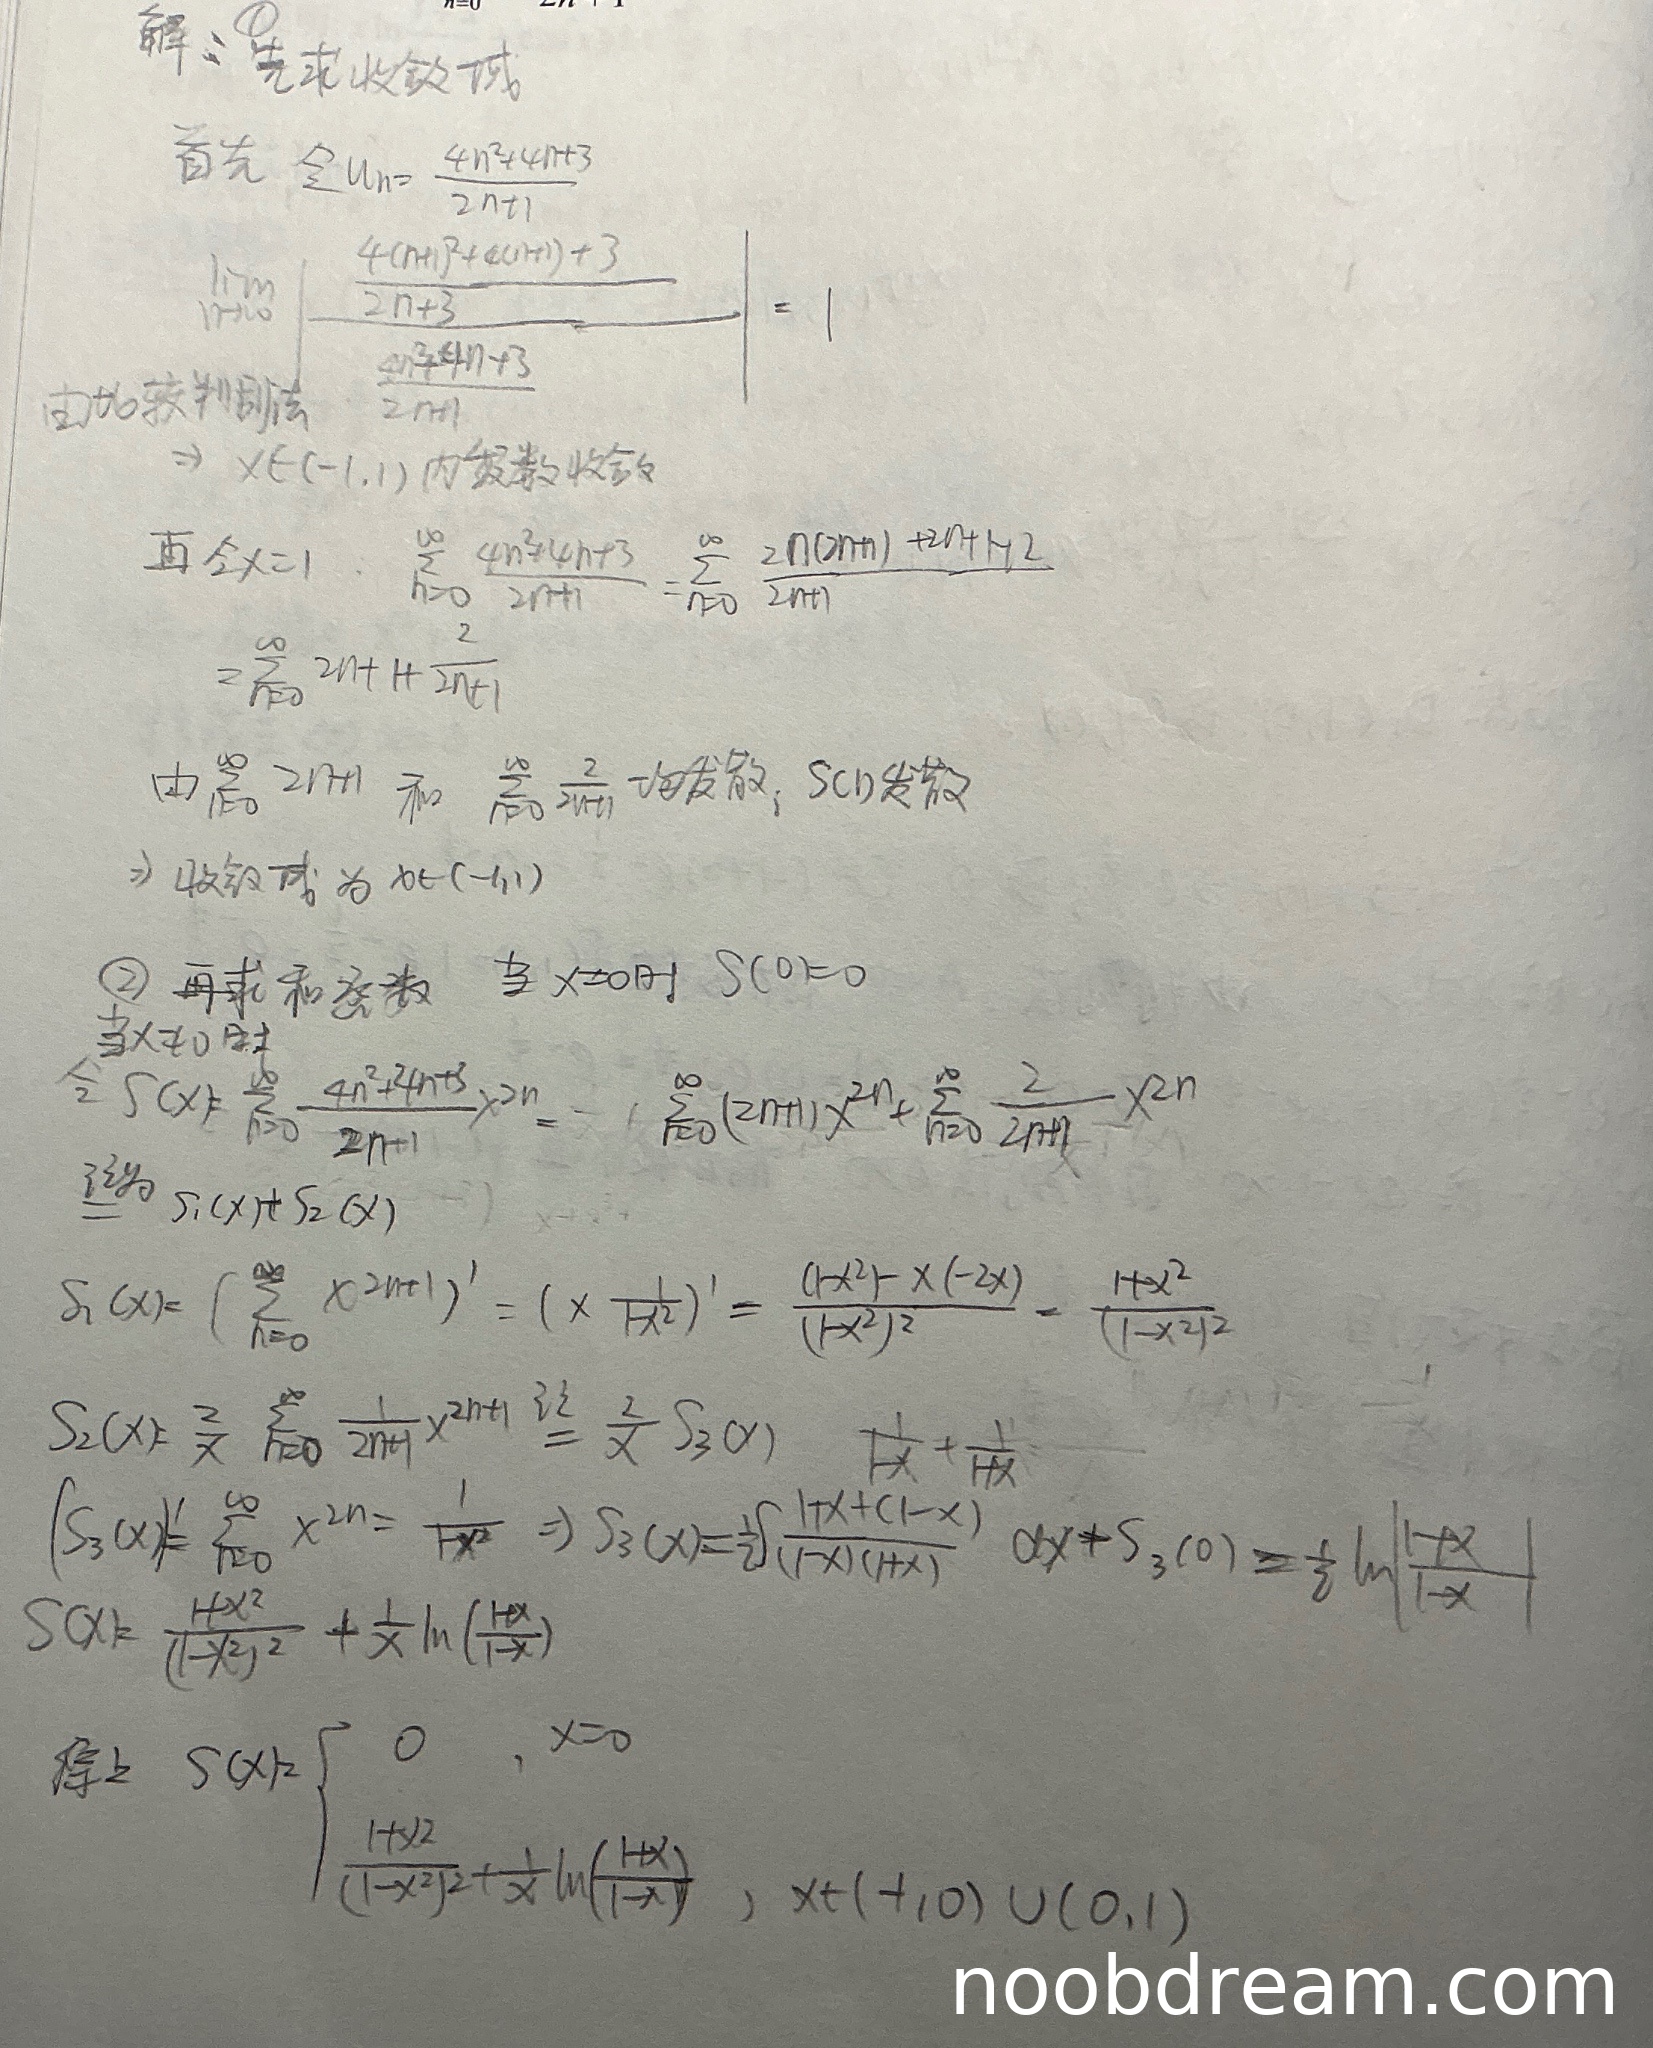 n=0 2n+1
解：①先求收敛域
首先 令 Un = (4n²+4n+3)/(2n+1)
lim n→∞ | ((4(n+1)²+4(n+1)+3)/(2n+3)) / ((4n²+4n+3)/(2n+1)) | = 1
由比较判别法
⇒ x∈(-1,1) 内级数收敛
再令x=1 . ∑_{n=0}^{∞} (4n²+4n+3)/(2n+1) = ∑_{n=0}^{∞} (2n(2n+1)+2n+1+2)/(2n+1)
= ∑_{n=0}^{∞} 2n+1+ 2/(2n+1)
由 ∑_{n=0}^{∞} 2n+1 和 ∑_{n=0}^{∞} 2/(2n+1) 均发散, S(1)发散
⇒ 收敛域为 x∈(-1,1)
② 再求和函数 当 x=0时 S(0)=0
当x≠0时
令 S(x)= ∑_{n=0}^{∞} (4n²+4n+3)/(2n+1) x^{2n} = ∑_{n=0}^{∞} (2n+1)x^{2n} + ∑_{n=0}^{∞} 2/(2n+1) x^{2n}
记为 = S₁(x)+S₂(x)
S₁(x)= (∑_{n=0}^{∞} x^{2n+1})' = (x 1/(1-x²))' = ((1-x²)-x(-2x))/(1-x²)² = (1+x²)/(1-x²)²
S₂(x)= 2/x ∑_{n=0}^{∞} 1/(2n+1) x^{2n+1} 记 = 2/x S₃(x) 1/(1-x) + 1/(1+x)
(S₃(x))'= ∑_{n=0}^{∞} x^{2n} = 1/(1-x²) ⇒ S₃(x)= ½∫ (1+x+(1-x))/((1-x)(1+x)) dx + S₃(0) = ½ ln|(1+x)/(1-x)|
S(x)= (1+x²)/(1-x²)² + 1/x ln((1+x)/(1-x))
综上 S(x)= { 0 , x=0
(1+x²)/(1-x²)² + 1/x ln((1+x)/(1-x)) , x∈(-1,0)∪(0,1)
noobdream.com